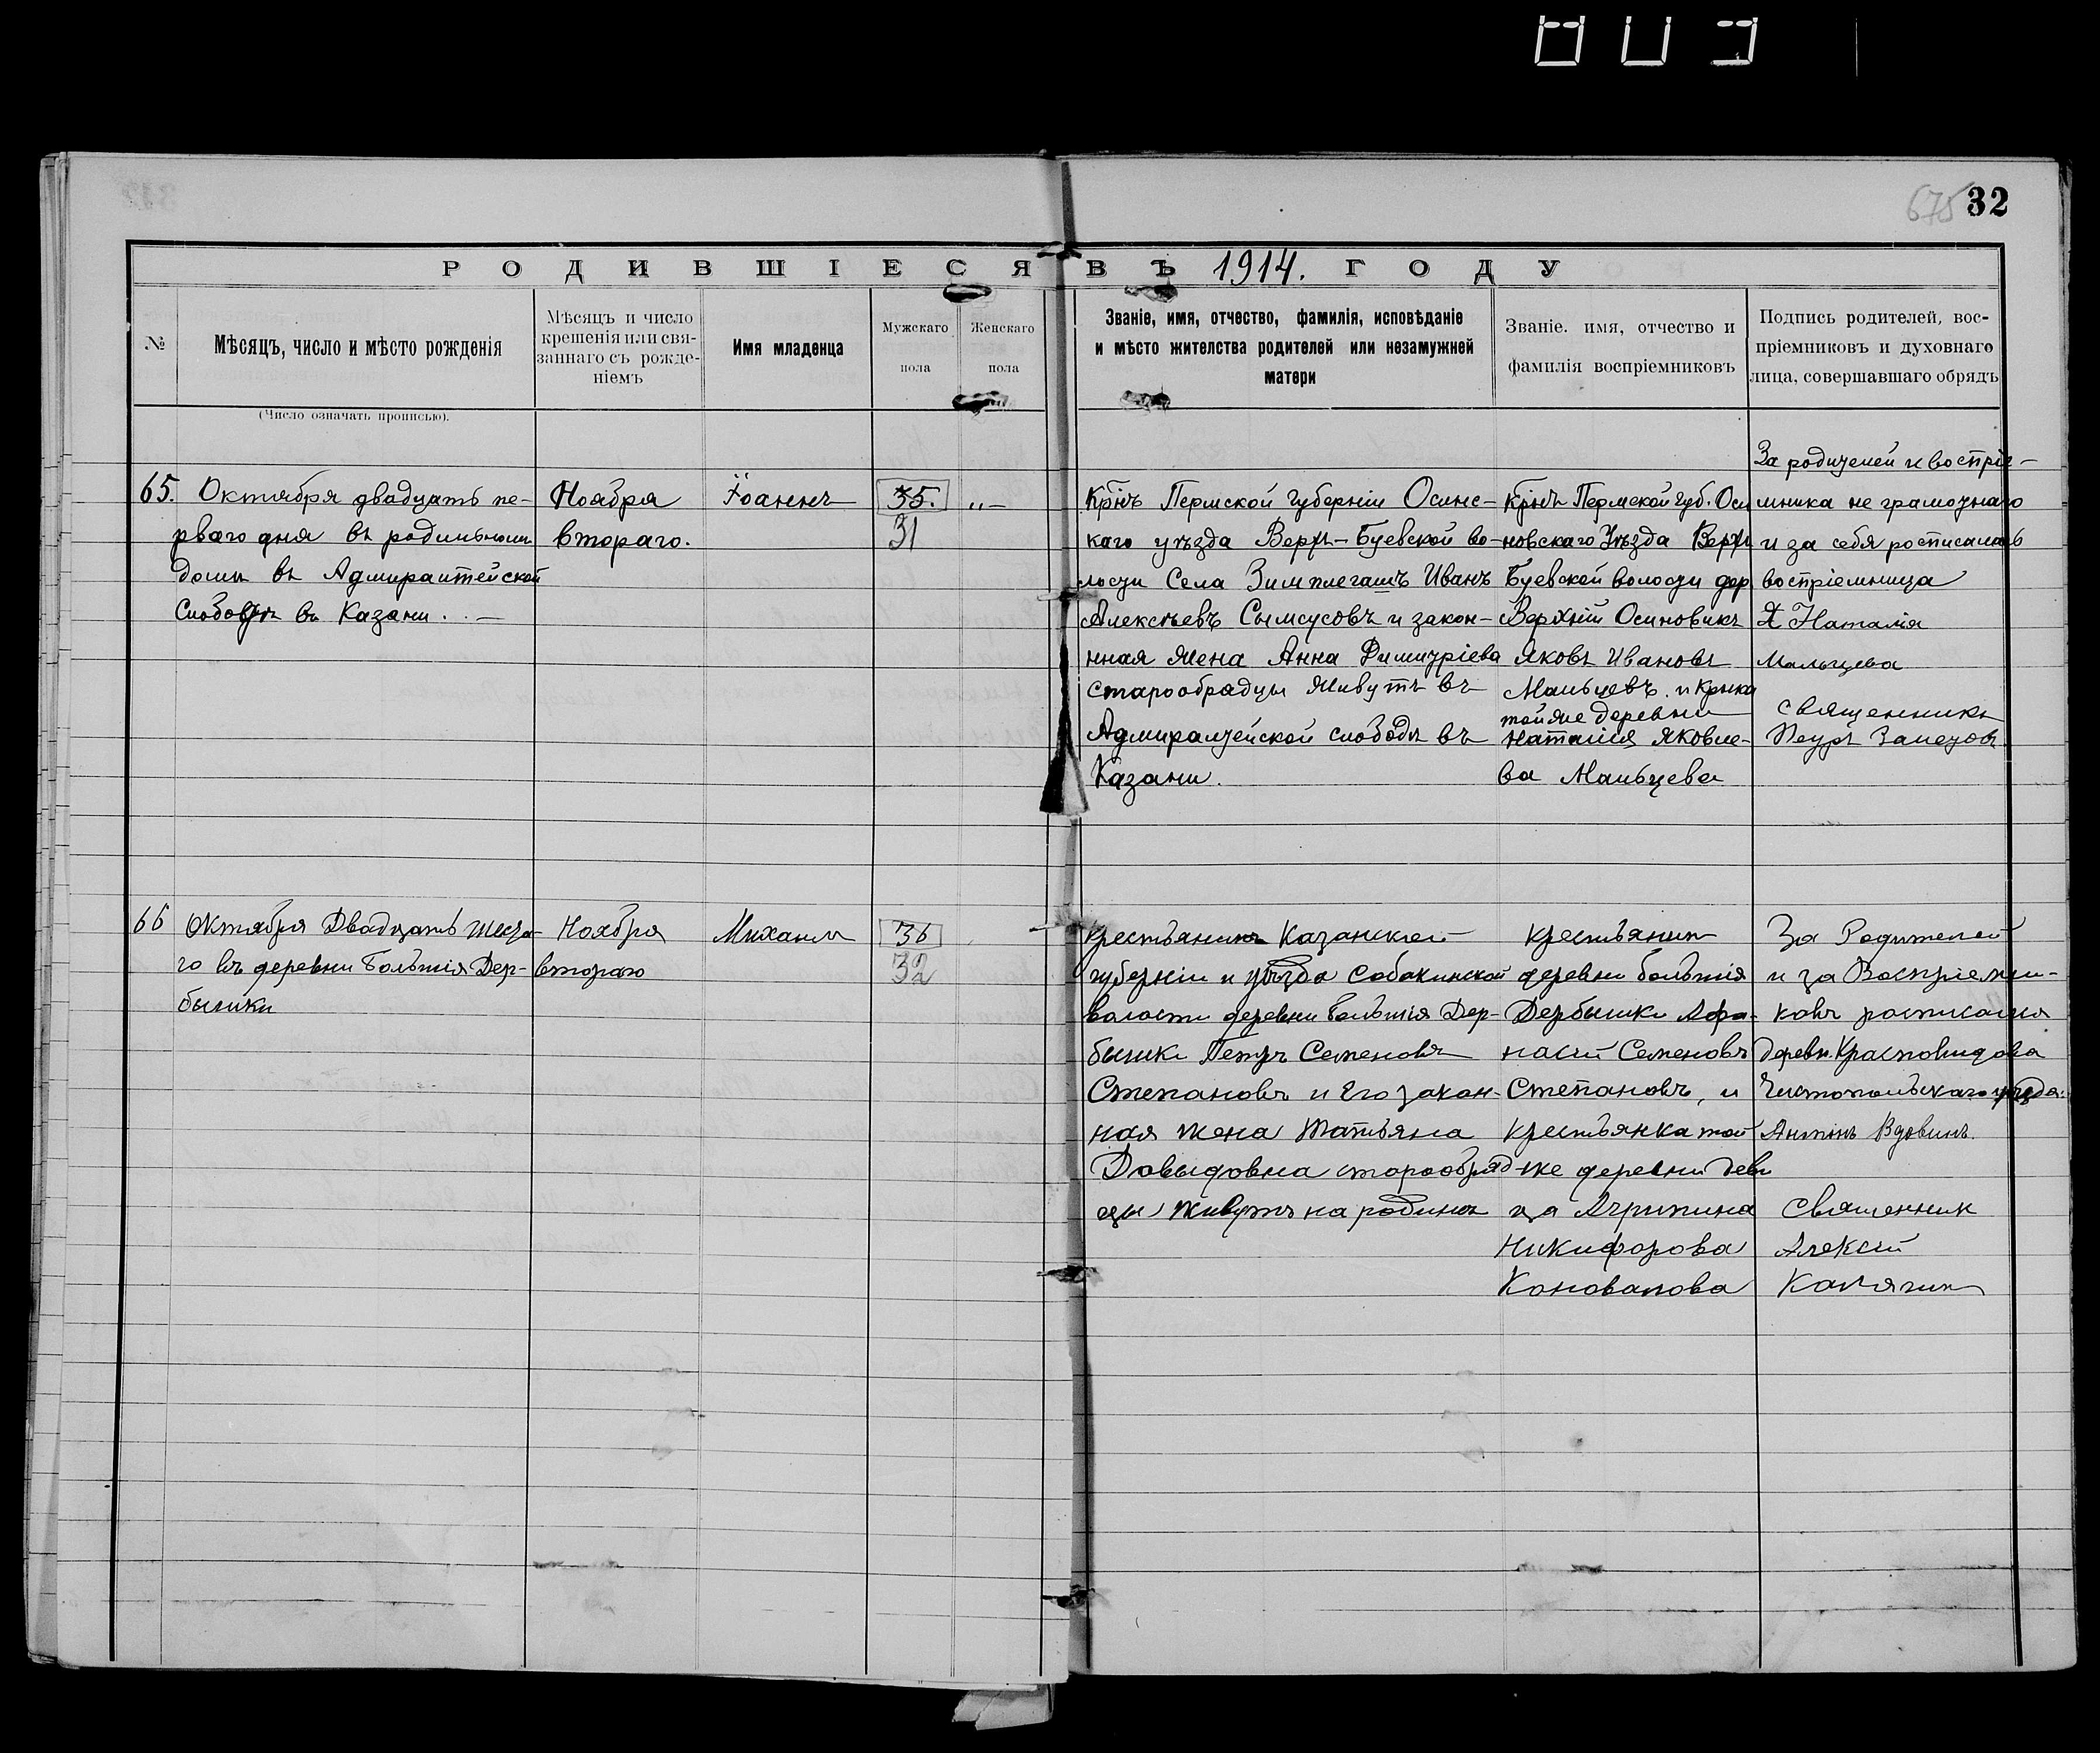 675 32
РОДИВШІЕСЯ ВЪ 1914. ГОДУ
№
Мѣсяцъ, число и мѣсто рожденія
(Число означать прописью).
Мѣсяцъ и число
крещенія или свя-
заннаго съ рожде-
ніемъ
Имя младенца
Мужскаго
пола
Женскаго
пола
Званіе, имя, отчество, фамилія, исповѣданіе
и мѣсто жителства родителей или незамужней
матери
Званіе. имя, отчество и
фамилія воспріемниковъ
Подпись родителей, вос-
пріемниковъ и духовнаго
лица, совершавшаго обрядъ
65.
Октября двадцать пе-
рваго дня въ родильномъ
домѣ въ Адмиралтейской
Слободѣ въ Казани . . —
Ноября
втораго.
Іоаннъ
35.
31
„ –
Крнъ Пермской губерніи Осинс-
каго уѣзда Верх-Буевской во-
лости Села Иванъ
Алексѣевъ и закон-
нная жена Анна Димитріева
старообрядцы живутъ въ
Адмиралтейской слободѣ въ
Казани.
Крнъ Пермской губ. Оси
новскаго Уѣзда Верх
Буевской волости дер.
Верхній Осиновикъ
Яковъ Ивановъ
Мальцевъ. и Крнка
той же деревни
Наталія Яковле-
ва Мальцева
За родителей и воспріе-
мника не грамотнаго
и за себя росписалась
воспріемница
Наталія
Мальцева
Священникъ
Петръ Залетовъ
66
Октября Двадцать шеста-
го въ деревни Большія Дер-
бышки
Ноября
втораго
Михаилъ
36
32
крестьянинъ Казанской
губерніи и уѣзда Собакинской
волости деревни Большія Дер-
бышки Петръ Семеновъ
Степановъ и Его закон-
ная жена Татьяна
Давыдовна старообряд-
цы живутъ на родинѣ
крестьянин
деревни большія
Дербышки Афа-
насій Семеновъ
Степановъ, и
крестьянка той
же деревни деви
ца Агрипина
Никифорова
Коновалова
За Родителей
и за Воспріемни-
ковъ росписался
деревн. Красновидова
Чистопольскаго уѣзда.
Антонъ Вдовинъ.
Священник
Алексій
Калягин